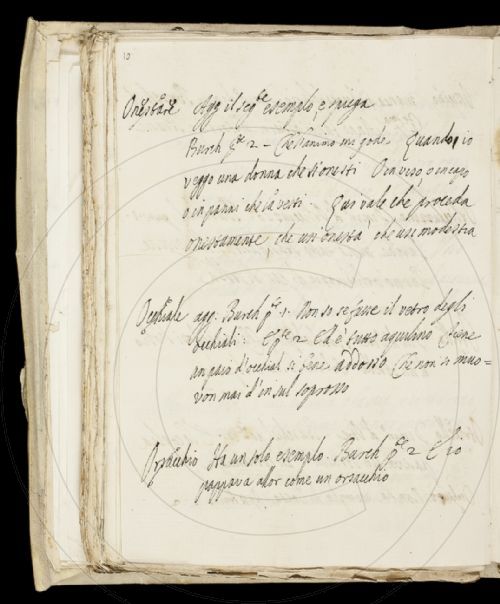 10
Onestare Agg. il seg.te esempio, e spiega
Burch p.te 2 - Che l'animo mi gode Quando io
veggo una donna che s'onesti O in viso, o in capo
o in panni che la vesti Qui vale che proceda
onestamente che usi onestà che usi modestia
Occhiale agg. Burch p.te 1. Non so se fusse il vetro degli
occhiali: E p.te 2 Ed è tutto aquilino E tiene
un paio d'occhial si fine addosso Che non si muo=
von mai d'in sul soprosso
Orsacchio Ha un solo esempio. Burch p.te 2 E io
pappava allor come un orsacchio